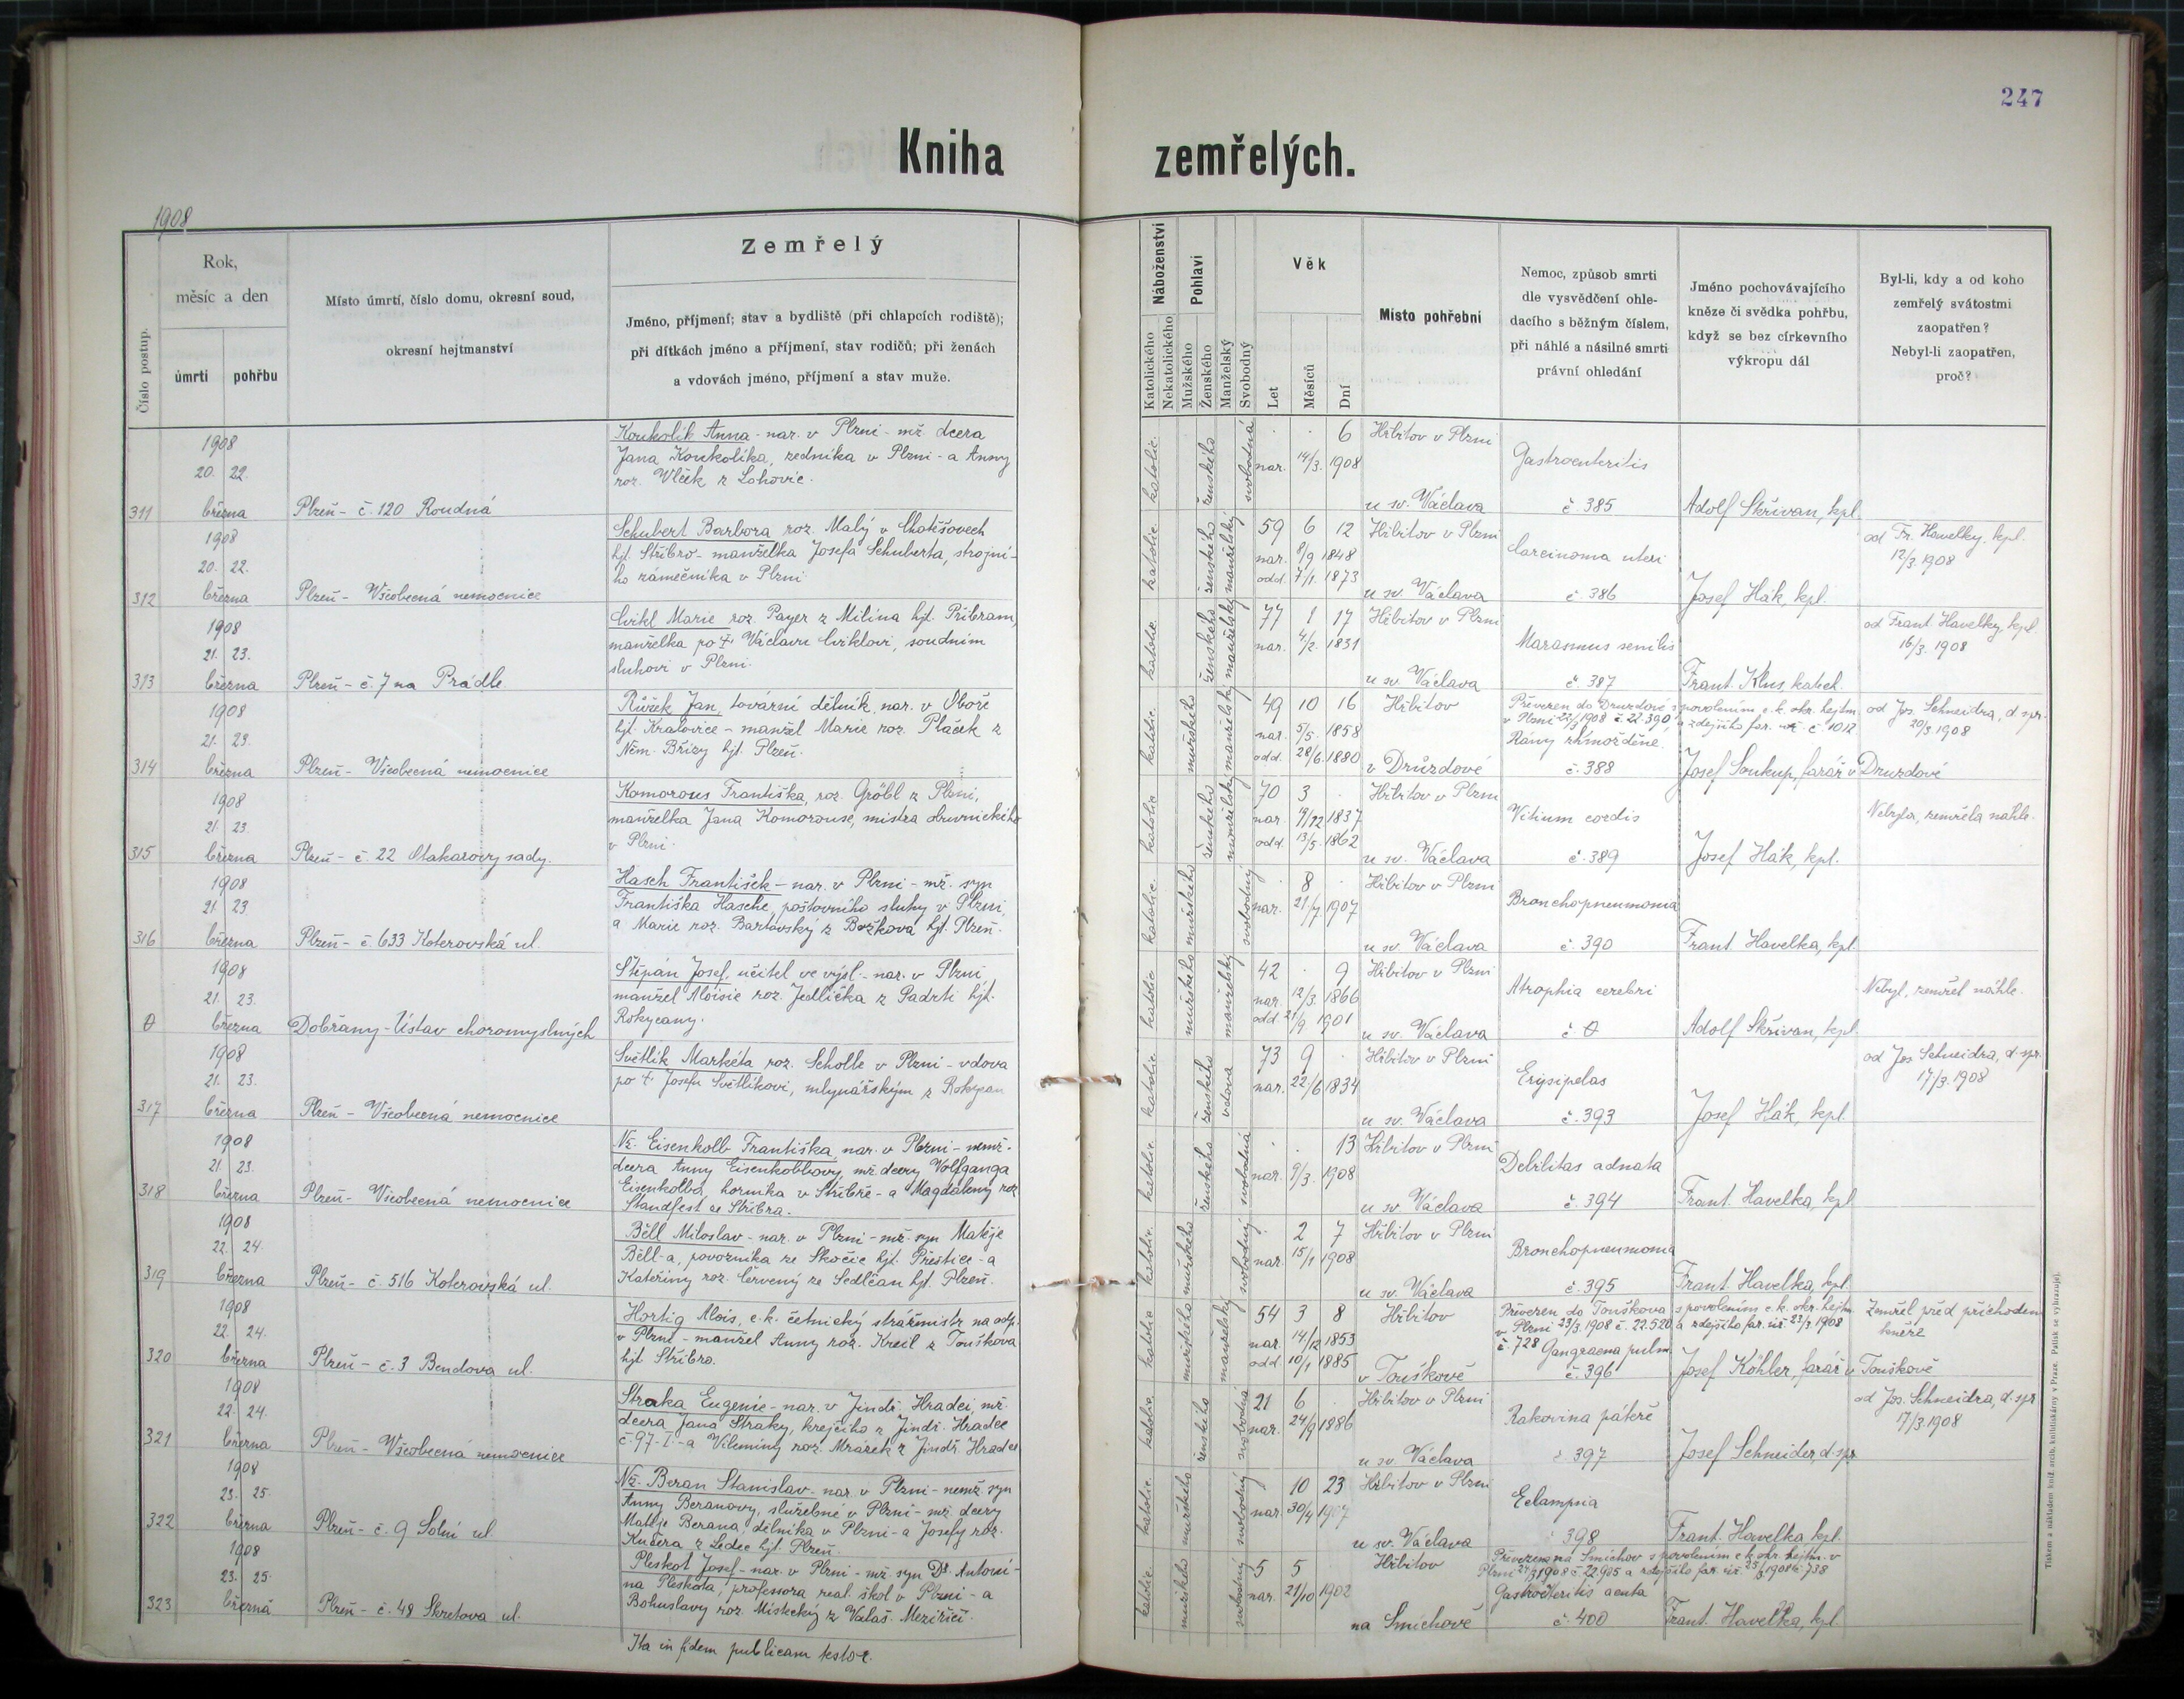 247
Kniha zemřelých.
1908
Číslo postup.
Rok,
měsíc a den
úmrtí
pohřbu
Místo úmrtí, číslo domu, okresní soud,
okresní hejtmanství
Zemřelý
Jméno, příjmení; stav a bydliště (při chlapcích rodiště);
při dítkách jméno a příjmení, stav rodičů; při ženách
a vdovách jméno, příjmení a stav muže.
Náboženství
Katolického
Nekatolického
Pohlaví
Mužského
Ženského
Manželský
Svobodný
Věk
Let
Měsíců
Dní
Místo pohřební
Nemoc, způsob smrti
dle vysvědčení ohle-
dacího s běžným číslem,
při náhlé a násilné smrti
právní ohledání
Jméno pochovávajícího
kněze či svědka pohřbu,
když se bez církevního
výkropu dál
Byl-li, kdy a od koho
zemřelý svátostmi
zaopatřen?
Nebyl-li zaopatřen,
proč?
311
1908
20. 22.
března
Plzeň - č. 120 Roudná
Koukolík Anna - nar. v Plzni - mž. dcera
Jana Koukolíka, zedníka v Plzni - a Anny
roz. Vlček z Lohovic.
katolic. ženského svobodná
. . 6
nar. 14/3. 1908
Hřbitov v Plzni
u sv. Václava
Gastroenteritis
č. 385
Adolf Skřivan, kpl.
312
1908
20. 22.
března
Plzeň - Všeobecná nemocnice
Schubert Barbora roz. Malý v Chotěšovech
hjt. Stříbro - manželka Josefa Schuberta, strojní-
ho zámečníka v Plzni.
katolic ženského manželský
59 6 12
nar. 8/9 1848
odd. 7/1. 1873
Hřbitov v Plzni
u sv. Václava
Carcinoma uteri
č. 386
Josef Hák, kpl.
od Fr. Havelky, kpl.
12/3. 1908
313
1908
21. 23.
března
Plzeň - č. 7 na Prádle
Cvikl Marie roz. Payer z Milína hjt. Příbram,
manželka po † Václavu Cviklovi, soudním
sluhovi v Plzni.
katolic. ženského manželský
77 1 17
nar. 4/2. 1831
Hřbitov v Plzni
u sv. Václava
Marasmus senilis
č. 387
Frant. Klus, katech.
od Frant. Havelky, kpl.
16/3. 1908
314
1908
21. 23.
března
Plzeň - Všeobecná nemocnice
Růžek Jan, tovární dělník, nar. v Oboře
hjt. Kralovice - manžel Marie roz. Ptáček z
Něm. Břízy hjt. Plzeň.
katolic. mužského manželský
49 10 16
nar. 5/5. 1858
odd. 28/6. 1880
Hřbitov
v Druzdové
Převezen do Druzdové s povolením c. k. okr. hejtm.
v Plzni 22/3 1908 č. 22.390 a zdejšího far. úř. č. 1012
Rány zhmožděné.
č. 388
Josef Soukup, farář v Druzdové
od Jos. Schneidra, d. spr.
20/3. 1908
315
1908
21. 23.
března
Plzeň - č. 22 Otakarovy sady.
Komorous Františka, roz. Gröbl z Plzni,
manželka Jana Komorouse, mistra obuvnického
v Plzni.
katolic ženského manželský
70 3 .
nar. 19/12 1837
odd. 13/5. 1862
Hřbitov v Plzni
u sv. Václava
Vitium cordis
č. 389
Josef Hák, kpl.
Nebyla, zemřela náhle.
316
1908
21. 23.
března
Plzeň - č. 633 Koterovská ul.
Hasch František - nar. v Plzni - mž. syn
Františka Hasche, poštovního sluhy v Plzni,
a Marie roz. Bartovský z Božkova hjt. Plzeň.
katolic. mužského svobodný
. 8 .
nar. 21/7. 1907
Hřbitov v Plzni
u sv. Václava
Bronchopneumonia
č. 390
Frant. Havelka, kpl.
0
1908
21. 23.
března
Dobřany - Ústav choromyslných
Štěpán Josef, učitel ve výsl. - nar. v Plzni,
manžel Aloisie roz. Jedlička z Padrti hjt.
Rokycany.
katolic mužského manželský
42 . 9
nar. 12/3. 1866
odd. 21/9 1901
Hřbitov v Plzni
u sv. Václava
Atrophia cerebri
č. 0
Adolf Skřivan, kpl.
Nebyl, zemřel náhle.
317
1908
21. 23.
března
Plzeň - Všeobecná nemocnice
Světlík Markéta roz. Scholle v Plzni - vdova
po † Josefu Světlíkovi, mlynářským z Rokycan
katolic ženského vdova
73 9 .
nar. 22/6 1834
Hřbitov v Plzni
u sv. Václava
Erysipelas
č. 393
Josef Hák, kpl.
od Jos. Schneidra, d. spr.
17/3. 1908
318
1908
21. 23.
března
Plzeň - Všeobecná nemocnice
Nž. Eisenkolb Františka, nar. v Plzni - nemž.
dcera Anny Eisenkolbovy, mž. dcery Wolfganga
Eisenkolba, horníka v Stříbře - a Magdaleny roz.
Standfest ze Stříbra.
katolic. ženského svobodná
. . 13
nar. 9/3. 1908
Hřbitov v Plzni
u sv. Václava
Debilitas adnata
č. 394
Frant. Havelka, kpl.
319
1908
22. 24.
března
Plzeň - č. 516 Koterovská ul.
Běll Miloslav - nar. v Plzni - mž. syn Matěje
Běll-a, povozníka ze Skočic hjt. Přeštice - a
Kateřiny roz. Červený ze Sedlčan hjt. Plzeň.
katolic. mužského svobodný
2 7
nar. 15/1 1908
Hřbitov v Plzni
u sv. Václava
Bronchopneumonia
č. 395
Frant. Havelka, kpl.
320
1908
22. 24.
března
Plzeň - č. 3 Bendova ul.
Hortig Alois, c. k. četnický strážmistr na odp.
v Plzni - manžel Anny roz. Kreil z Touškova
hjt. Stříbro.
katolic mužského manželský
54 3 8
nar. 14/12 1853
odd. 10/1 1885
Hřbitov
v Touškově
Převezen do Touškova s povolením c. k. okr. hejtm.
v Plzni 23/3. 1908 č. 22.520 a zdejšího far. úř. 23/3 1908
č. 728 Gangraena pulm.
č. 396
Josef Köhler, farář v Touškově
Zemřel před příchodem
kněze
321
1908
22. 24.
března
Plzeň - Všeobecná nemocnice
Straka Eugenie - nar. v Jindř. Hradci, mž.
dcera Jana Straky, krejčího z Jindř. Hradce
č. 97-I. - a Vilemíny roz. Mrázek z Jindř. Hradce
katolic. ženského svobodná
21 6
nar. 24/9 1886
Hřbitov v Plzni
u sv. Václava
Rakovina páteře
č. 397
Josef Schneider, d. spr.
od Jos. Schneidra, d. spr.
17/3. 1908
322
1908
23. 25.
března
Plzeň - č. 9 Solní ul.
Nž. Beran Stanislav - nar. v Plzni - nemž. syn
Anny Beranovy, služebné v Plzni - mž. dcery
Matěje Berana, dělníka v Plzni - a Josefy roz.
Kučera z Ledec hjt. Plzeň.
katolic. mužského svobodný
10 23
nar. 30/4 1907
Hřbitov v Plzni
u sv. Václava
Eclampsia
398
Frant. Havelka, kpl.
323
1908
23. 25.
března
Plzeň - č. 48 Skretova ul.
Pleskot Josef - nar. v Plzni - mž. syn Dr. Antoní-
na Pleskota, professora real. škol v Plzni - a
Bohuslavy roz. Mistecký z Valaš. Meziříčí.
katolic. mužského svobodný
5 5
nar. 21/10 1902
Hřbitov
na Smíchově
Převezen na Smíchov s povolením c. k. okr. hejtm. v
Plzni 24/3 1908 č. 22.905 a zdejšího far. úř. 25/3 1908 č. 738
Gastroenteritis acuta
č. 400
Frant. Havelka, kpl.
Ita in fidem publicam testor.
Tiskem a nákladem kníž. arcib. knihtiskárny v Praze. Patisk se vyhrazuje.